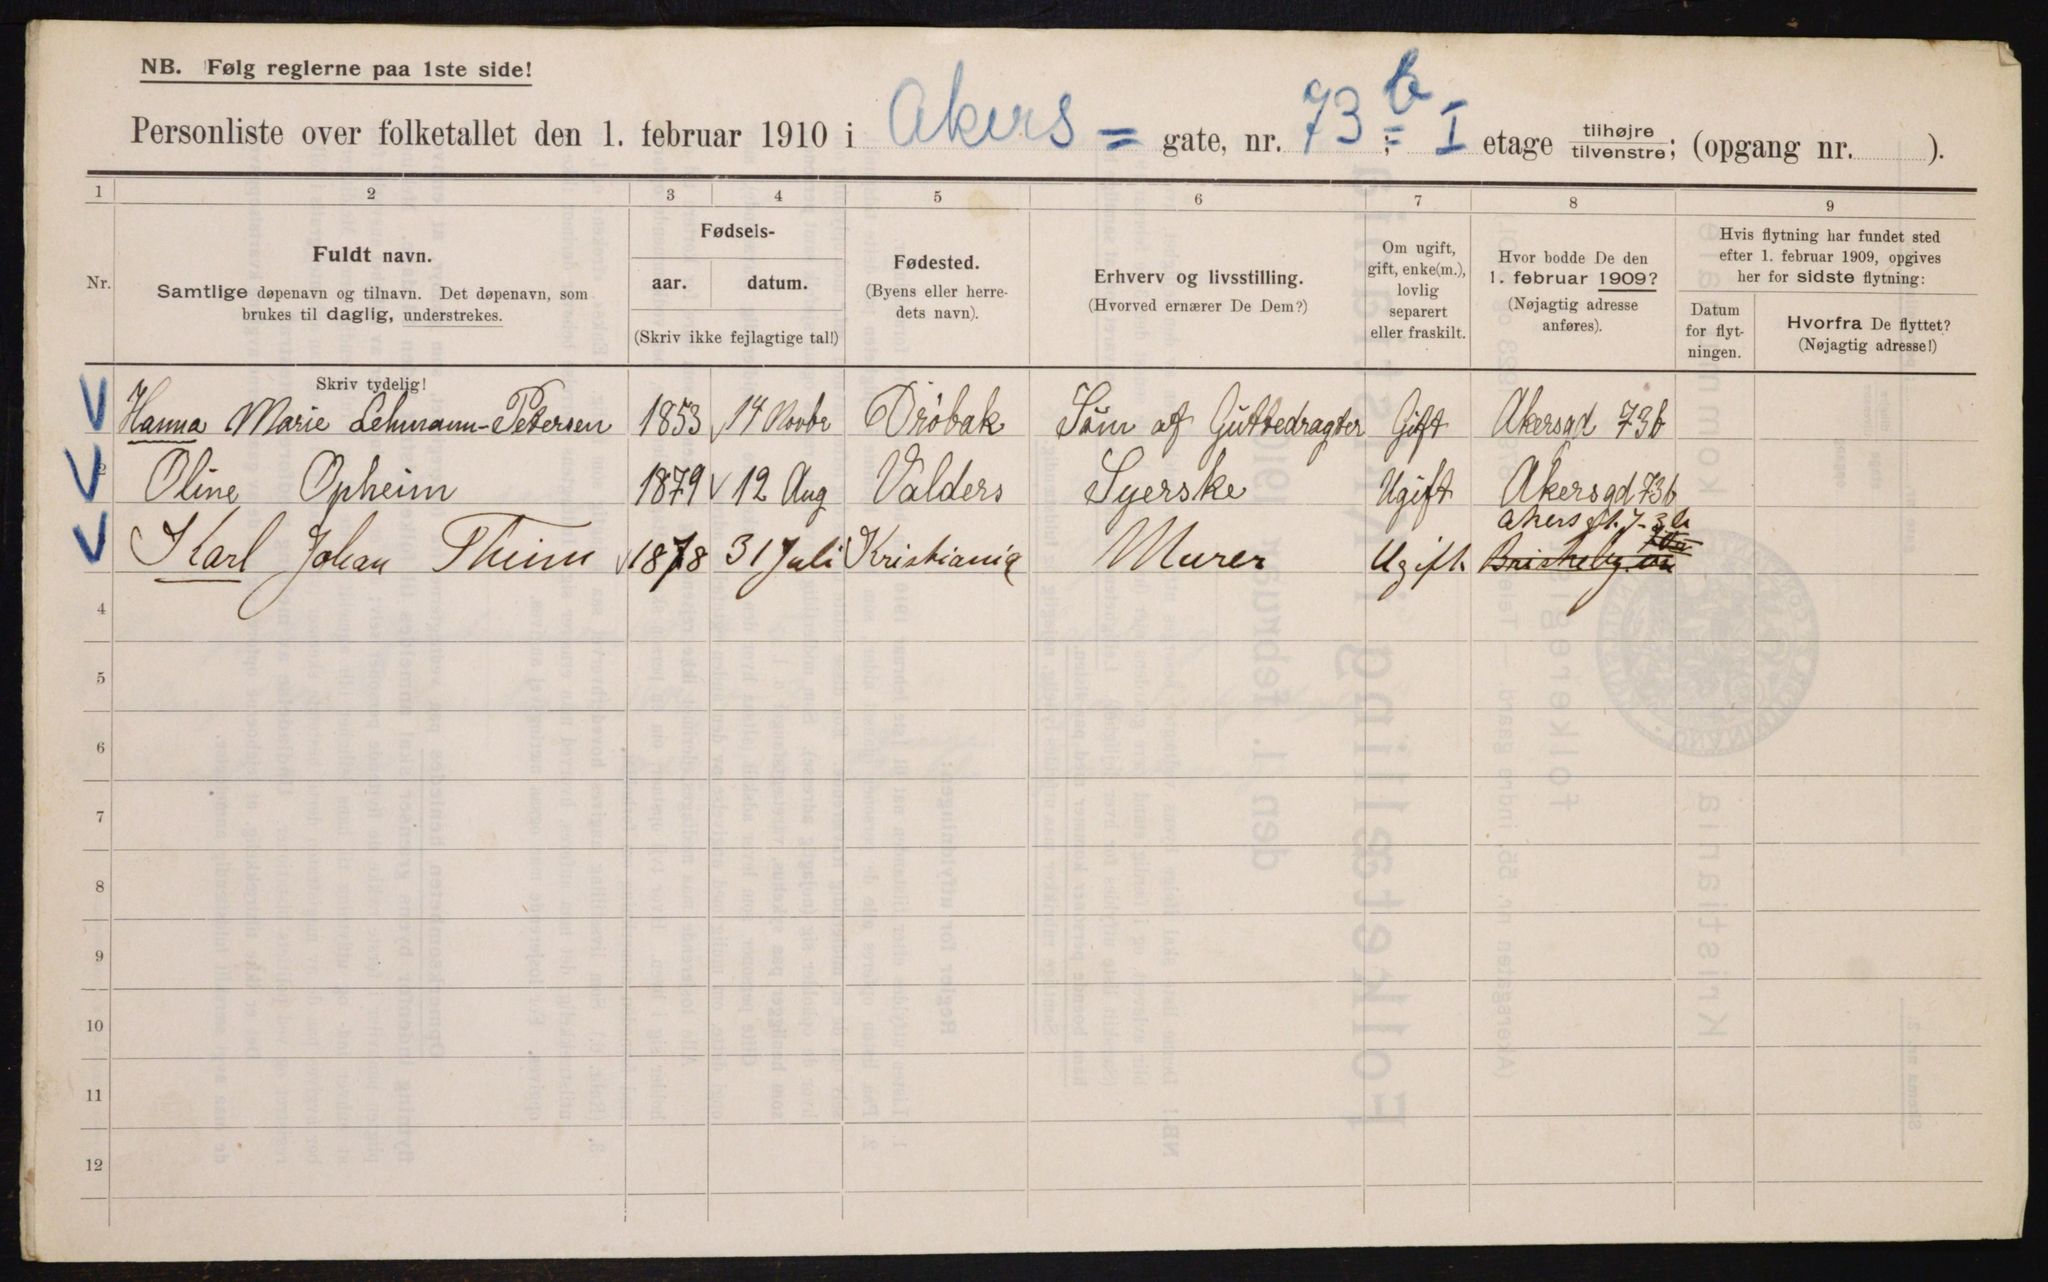 NB. Følg reglerne paa 1ste side!
Personliste over folketallet den 1. februar 1910 i Akers = gate, nr. 73 b ; I etage tilhøjre / tilvenstre; (opgang nr. ).
1 2 3 4 5 6 7 8 9
Nr.
Fuldt navn.
Samtlige døpenavn og tilnavn. Det døpenavn, som
brukes til daglig, understrekes.
Fødsels-
aar. datum.
(Skriv ikke fejlagtige tal!)
Fødested.
(Byens eller herre-
dets navn).
Erhverv og livsstilling.
(Hvorved ernærer De Dem?)
Om ugift,
gift, enke(m.),
lovlig
separert
eller fraskilt.
Hvor bodde De den
1. februar 1909?
(Nøjagtig adresse
anføres).
Hvis flytning har fundet sted
efter 1. februar 1909, opgives
her for sidste flytning:
Datum
for flyt-
ningen.
Hvorfra De flyttet?
(Nøjagtig adresse!)
Skriv tydelig!
Hanna Marie Lehmann-Petersen 1853 14 Novbr Dröbak Søm af Guttedragter Gift Akersgd 73b
2 Oline Opheim 1879 12 Aug Valders Syerske Ugift Akersgd 73b
Karl Johan Thim 1878 31 Juli Kristiania Murer Ugift. Akersgt. 73 b
Briskeby
4
5
6
7
8
9
10
11
12